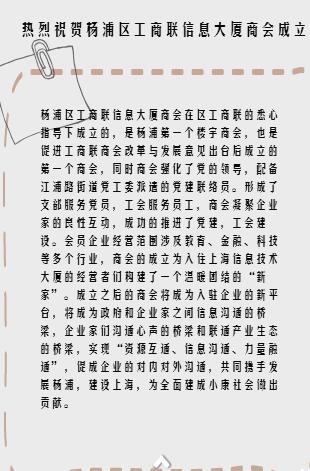 热烈祝贺杨浦区工商联信息大厦商会成立
杨浦区工商联信息大厦商会在区工商联的悉心
指导下成立的，是杨浦第一个楼宇商会，也是
促进工商联商会改革与发展意见出台后成立的
第一个商会，同时商会强化了党的领导，配备
江浦路街道党工委派遣的党建联络员。形成了
支部服务党员，工会服务员工，商会凝聚企业
家的良性互动，成功的推进了党建，工会建
设。会员企业经营范围涉及教育、金融、科技
等多个行业，商会的成立为入住上海信息技术
大厦的经营者们构建了一个温暖团结的“新
家”。成立之后的商会将成为入驻企业的新平
台，将成为政府和企业家之间信息沟通的桥
梁，企业家们沟通心声的桥梁和联通产业生态
的桥梁，实现“资源互通、信息沟通、力量融
通”，促成企业的对内对外沟通，共同携手发
展杨浦，建设上海，为全面建成小康社会做出
贡献。